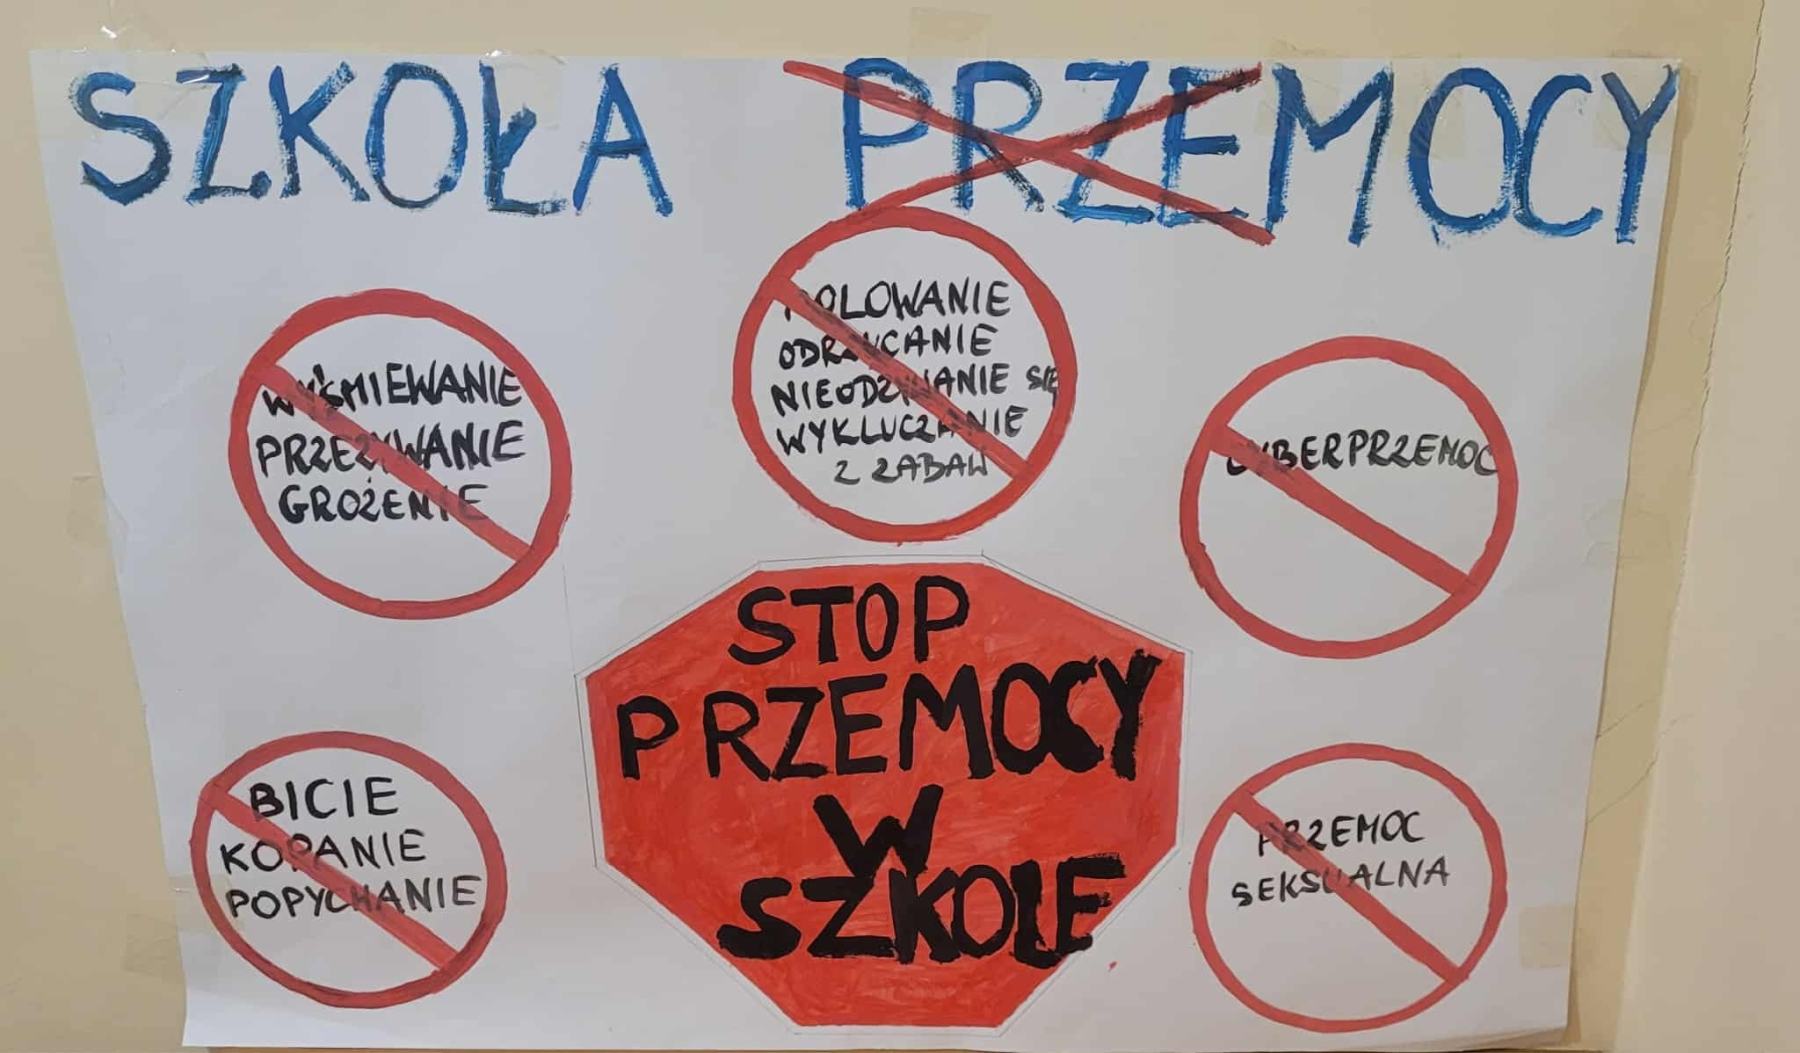 SZKOŁA PRZEMOCY
WYŚMIEWANIE
PRZEZYWANIE
GROŻENIE
POLOWANIE
ODRZUCANIE
NIEODZYWANIE SIĘ
WYKLUCZANIE
Z ZABAW
CYBERPRZEMOC
STOP
PRZEMOCY
W
SZKOLE
BICIE
KOPANIE
POPYCHANIE
PRZEMOC
SEKSUALNA